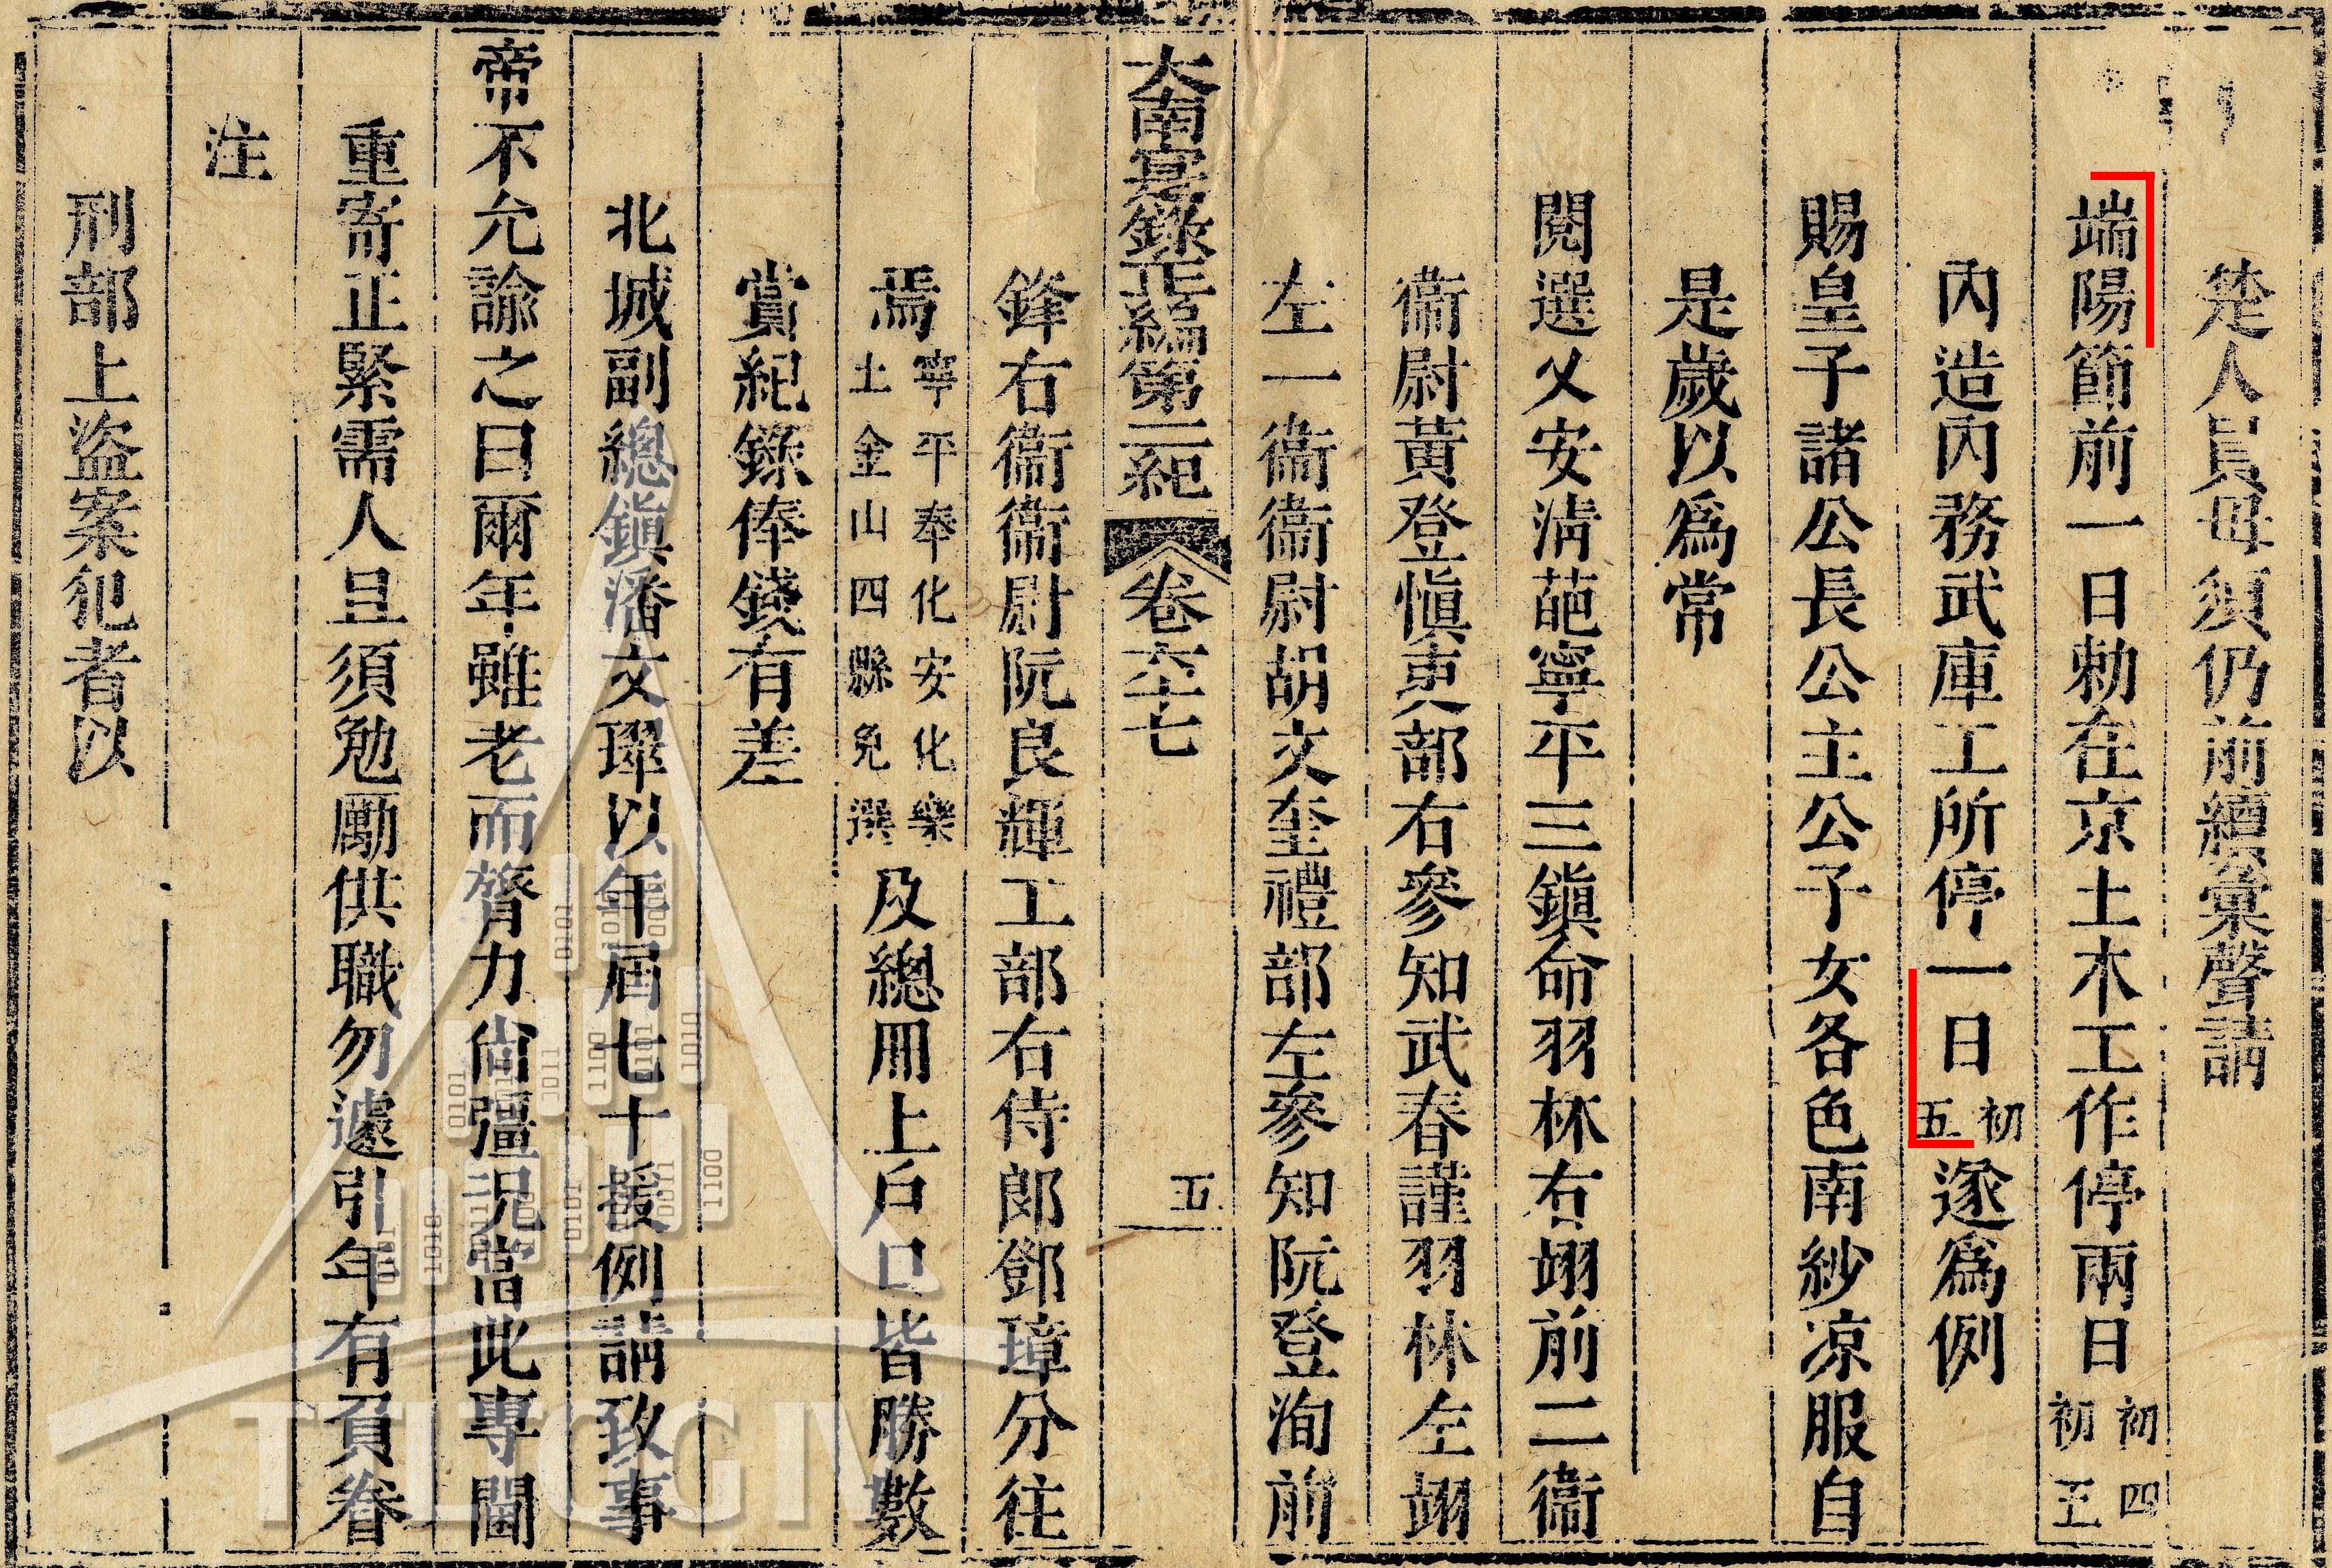 楚人員毋須仍前續彙聲請
端陽節前一日勅在京土木工作停兩日初四初五
內造內務武庫工所停一日初五遂為例
賜皇子諸公長公主公子女各色南紗凉服自
是歲以為常
閱選乂安清葩寧平三鎮命羽林右翊前二衞
衞尉黃登慎吏部右參知武春謹羽林左翊
左一衞衞尉胡文奎禮部左參知阮登洵前
大南寔錄正編第二紀 卷六十七 五
鋒右衞衞尉阮良輝工部右侍郎鄧璋分往
焉寧平奉化安化樂土金山四縣免選及總冊上戶口皆勝數
賞紀錄俸錢有差
北城副總鎮潘文璻以年届七十援例請致事
帝不允諭之曰爾年雖老而膂力尚彊況當此專閫
重寄正緊需人且須勉勵供職勿遽引年有負眷
注
刑部上盜案犯者以
TTLTQGIV